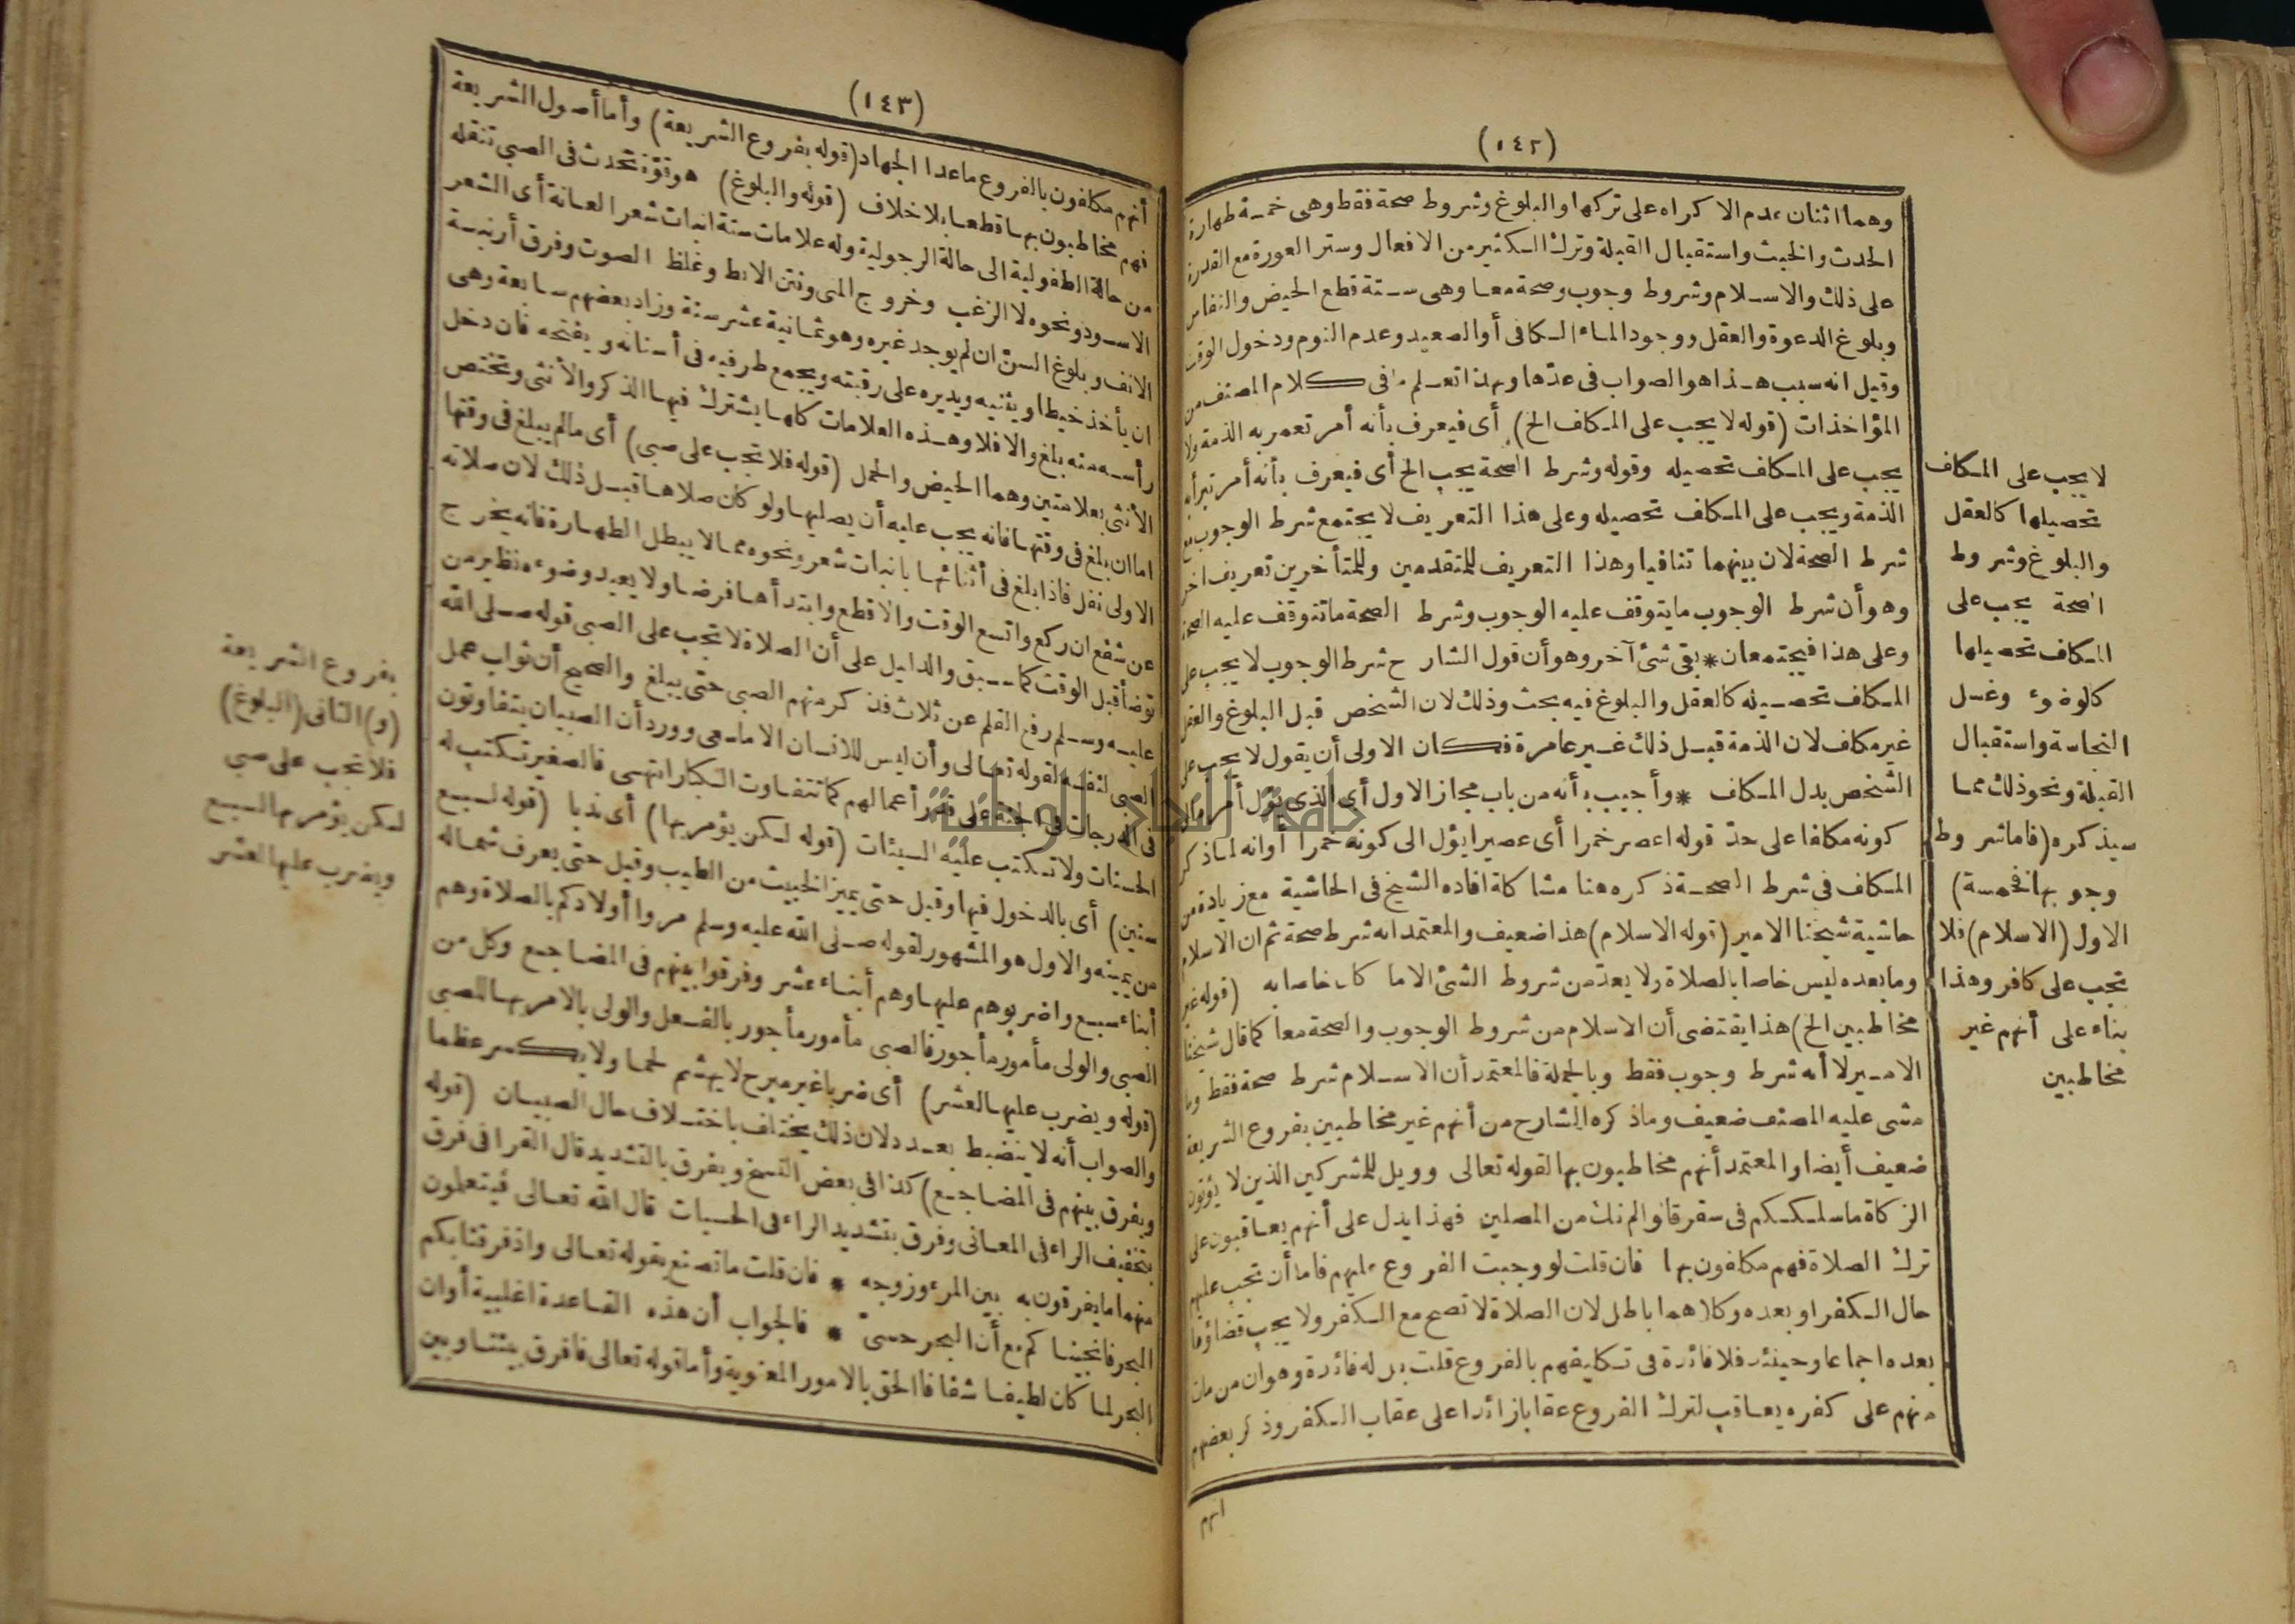 (١٤٢)
وهما اثنان عدم الاكراه على تركها والبلوغ وشروط صحة فقط وهى خمسة طهارة
الحدث والخبث واستقبال القبلة وترك الكثير من الافعال وستر العورة مع القدرة
على ذلك والاسلام وشروط وجوب وصحة معا وهى ستة قطع الحيض والنفاس
وبلوغ الدعوة والعقل ووجود الماء الكافى أو الصعيد وعدم النوم ودخول الوقت
وقيل انه سبب هذا هو الصواب فى عدّها وبهذا تعلم ما فى كلام المصنف من
المؤاخذات (قوله لا يجب على المكلف الخ) أى فيعرف بأنه أمر تعمر به الذمة ولا
يجب على المكلف تحصيله وقوله وشرط الصحة يجب الخ أى فيعرف بأنه أمر تبرأ به
الذمة ويجب على المكلف تحصيله وعلى هذا التعريف لا يجتمع شرط الوجوب مع
شرط الصحة لان بينهما تنافيا وهذا التعريف للمتقدمين وللمتأخرين تعريف اخر
وهو أن شرط الوجوب ما يتوقف عليه الوجوب وشرط الصحة ما تتوقف عليه الصحة
وعلى هذا فيجتمعان * بقى شئ آخر وهو أن قول الشارح شرط الوجوب لا يجب على
المكلف تحصيله كالعقل والبلوغ فيه بحث وذلك لان الشخص قبل البلوغ والعقل
غير مكلف لان الذمة قبل ذلك غير عامرة فكان الاولى أن يقول لا يجب على
الشخص بدل المكلف * وأجيب بأنه من باب مجاز الاول أى الذى يؤل أمره الى
كونه مكلفا على حدّ قوله اعصر خمرا أى عصيرا يؤل الى كونه خمرا أو انه لما ذكر
المكلف فى شرط الصحة ذكره هنا مشاكلة افاده الشيخ فى الحاشية مع زيادة من
حاشية شيخنا الامير (قوله الاسلام) هذا ضعيف والمعتمد انه شرط صحة ثم ان الاسلام
وما بعده ليس خاصا بالصلاة ولا يعدّ من شروط الشئ الا ما كان خاصا به (قوله غير
مخاطبين الخ) هذا يقتضى أن الاسلام من شروط الوجوب والصحة معا كما قال شيخنا
الامير لا أنه شرط وجوب فقط وبالجملة فالمعتمد أن الاسلام شرط صحة فقط وما
مشى عليه المصنف ضعيف وما ذكره الشارح من أنهم غير مخاطبين بفروع الشريعة
ضعيف أيضا والمعتمد أنهم مخاطبون بها لقوله تعالى وويل للمشركين الذين لا يؤتون
الزكاة ما سلككم فى سقر قالوا لم نك من المصلين فهذا يدل على أنهم يعاقبون على
ترك الصلاة فهم مكلفون بها فان قلت لو وجبت الفروع عليهم فاما أن تجب عليهم
حال الكفر او بعده وكلاهما باطل لان الصلاة لا تصح مع الكفر ولا يجب قضاؤها
بعده اجماعا وحينئذ فلا فائدة فى تكليفهم بالفروع قلت بل له فائدة وهو ان من مات
منهم على كفره يعاقب لترك الفروع عقابا زائدا على عقاب الكفر وذكر بعضهم
انهم
لا يجب على المكلف
تحصيلها كالعقل
والبلوغ وشروط
الصحة يجب على
المكلف تحصيلها
كالوضوء وغسل
النجاسة واستقبال
القبلة ونحو ذلك مما
سيذكره (فاما شروط
وجوبها فخمسة)
الاول (الاسلام) فلا
تجب على كافر وهذا
بناء على أنهم غير
مخاطبين
(١٤٣)
أنهم مكلفون بالفروع ما عدا الجهاد (قوله بفروع الشريعة) وأما أصول الشريعة
فهم مخاطبون بها قطعا بلا خلاف (قوله والبلوغ) هو قوّة تحدث فى الصبى تنقله
من حالة الطفولية الى حالة الرجولية وله علامات ستة انبات شعر العانة أى الشعر
الاسود ونحوه لا الزغب وخروج المنى ونتن الابط وغلظ الصوت وفرق أرنبة
الانف وبلوغ السن ان لم يوجد غيره وهو ثمانية عشر سنة وزاد بعضهم سابعة وهى
ان يأخذ خيطا ويثنيه ويديره على رقبته ويجمع طرفيه فى أسنانه ويفتحه فان دخل
رأسه منه بلغ والا فلا وهذه العلامات كلها يشترك فيها الذكر والأنثى وتختص
الأنثى بعلامتين وهما الحيض والحمل (قوله فلا تجب على صبى) أى ما لم يبلغ فى وقتها
اما ان بلغ فى وقتها فانه يجب عليه أن يصليها ولو كان صلاها قبل ذلك لان صلاته
الاولى نفل فاذا بلغ فى أثنائها بانبات شعر ونحوه مما لا يبطل الطهارة فانه يخرج
عن شفع ان ركع واتسع الوقت والا قطع وابتدأها فرضا ولا يعيد وضوءه نظير من
توضأ قبل الوقت كما سبق والدليل على أن الصلاة لا تجب على الصبى قوله صلى الله
عليه وسلم رفع القلم عن ثلاث فذكر منهم الصبى حتى يبلغ والصحيح أن ثواب عمل
الصبى لنفسه لقوله تعالى وأن ليس للانسان الا ما سعى وورد أن الصبيان يتفاوتون
فى الدرجات فى الجنة على قدر أعمالهم كما تتفاوت الكبار انتهى فالصغير تكتب له
الحسنات ولا تكتب عليه السيئات (قوله لكن يؤمر بها) أى ندبا (قوله لسبع
سنين) أى بالدخول فيها وقيل حتى يميز الخبيث من الطيب وقيل حتى يعرف شماله
من يمينه والاول هو المشهور لقوله صلى الله عليه وسلم مروا أولادكم بالصلاة وهم
أبناء سبع واضربوهم عليها وهم أبناء عشر وفرقوا بينهم فى المضاجع وكل من
الصبى والولى مأمور مأجور فالصبى مأمور مأجور بالفعل والولى بالامر بها للصبى
(قوله ويضرب عليها العشر) أى ضربا غير مبرح لا يهشم لحما ولا يكسر عظما
والصواب أنه لا ينضبط بعدد لان ذلك يختلف باختلاف حال الصبيان (قوله
ويفرق بينهم فى المضاجع) كذا فى بعض النسخ ويفرق بالتشديد قال القرافى فرق
بتخفيف الراء فى المعانى وفرق بتشديد الراء فى الحسيات قال الله تعالى فيتعلمون
منهما ما يفرقون به بين المرء وزوجه * فان قلت ما تصنع بقوله تعالى واذ فرقنا بكم
البحر فانجينا كم مع أن البحر حسىّ * فالجواب أن هذه القاعدة اغلبية أو ان
البحر لما كان لطيفا شفافا الحق بالامور المعنوية وأما قوله تعالى فافرق بيننا وبين
بفروع الشريعة
(و) الثانى (البلوغ)
فلا تجب على صبى
لكن يؤمر بها لسبع
ويضرب عليها العشر
جامعة النجاح الوطنية